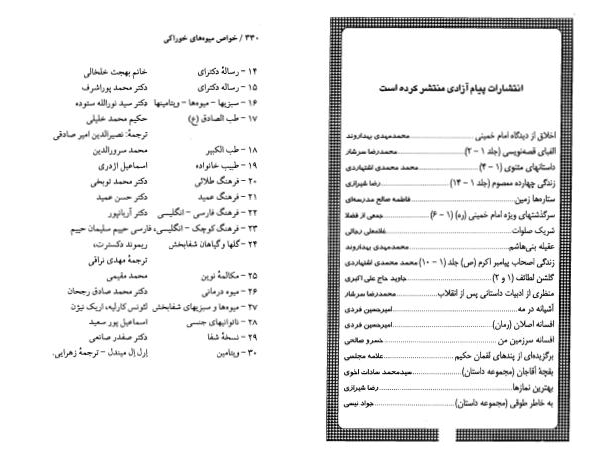 ۳۳۰ / خواص میوه‌های خوراکی
۱۴ - رسالهٔ دکترای خانم بهجت خلخالی
۱۵ - رساله دکترای دکتر محمد پوراشرف
۱۶ - سبزیها - میوه‌ها - ویتامینها دکتر سید نورالله ستوده
۱۷ - طب الصادق (ع) حکیم محمد خلیلی
ترجمه: نصیرالدین امیر صادقی
۱۸ - طب الکبیر محمد سرورالدین
۱۹ - طبیب خانواده اسماعیل اژدری
۲۰ - فرهنگ طلائی دکتر محمد نوبخی
۲۱ - فرهنگ عمید دکتر حسن عمید
۲۲ - فرهنگ فارسی - انگلیسی دکتر آریانپور
۲۳ - فرهنگ کوچک - انگلیسی، فارسی حییم سلیمان حییم
۲۴ - گلها و گیاهان شفابخش ریموند دکسترت،
ترجمهٔ مهدی نراقی
۲۵ - مکالمهٔ نوین محمد مقیمی
۲۶ - میوه درمانی دکتر محمد صادق رجحان
۲۷ - میوه‌ها و سبزیهای شفابخش لئونس کارلیه، اریک نیژن
۲۸ - ناتوانیهای جنسی اسماعیل پور سعید
۲۹ - نسخهٔ شفا دکتر صفدر صانعی
۳۰ - ویتامین اِرل اِل میندل - ترجمهٔ زهرایی.
انتشارات پیام آزادی منتشر کرده است
اخلاق از دیدگاه امام خمینی محمدمهدی بهداروند
الفبای قصه‌نویسی (جلد ۱ - ۲) محمدرضا سرشار
داستانهای مثنوی (۱ - ۴) محمد محمدی اشتهاردی
زندگی چهارده معصوم (جلد ۱ - ۱۴) رضا شیرازی
ستاره‌ها زمین فاطمه صالح مدرسه‌ای
سرگذشتهای ویژه امام خمینی (ره) (۱ - ۶) جمعی از فضلا
شریک صلوات غلامعلی رجائی
عقیله بنی‌هاشم محمدمهدی بهداروند
زندگی اصحاب پیامبر اکرم (ص) جلد (۱ - ۱۰) محمد محمدی اشتهاردی
گلشن لطائف (۱ و ۲) جاوید حاج علی اکبری
منظری از ادبیات داستانی پس از انقلاب محمدرضا سرشار
آشیانه در مه امیرحسین فردی
افسانه اصلان (رمان) امیرحسین فردی
افسانه سرزمین من خسرو صالحی
برگزیده‌ای از پندهای لقمان حکیم علامه مجلسی
بقچهٔ آقاجان (مجموعه داستان) سیدمحمد سادات اخوی
بهترین نمازها رضا شیرازی
به خاطر طوقی (مجموعه داستان) جواد نیسی